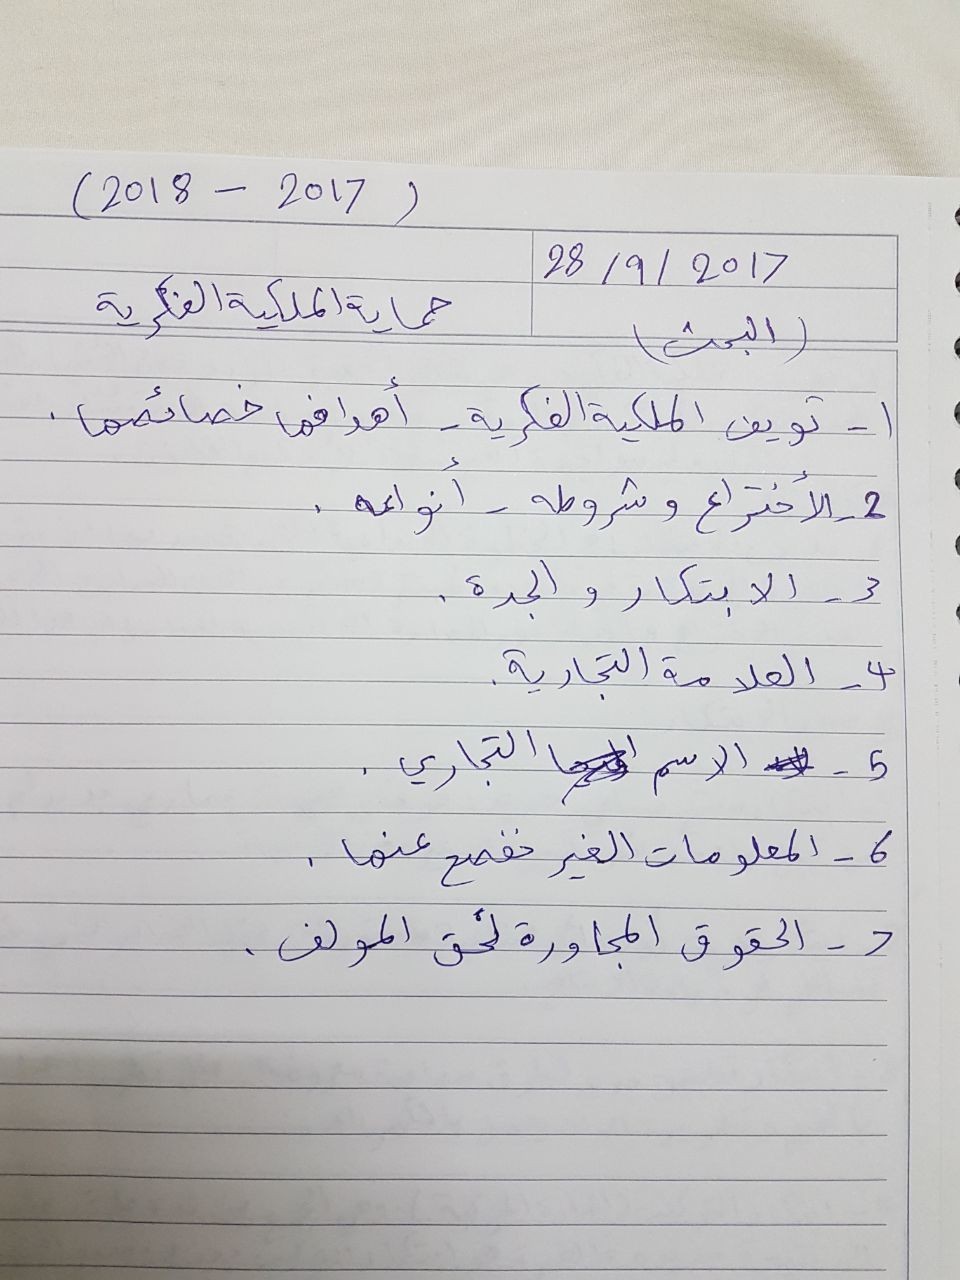 (2017 - 2018)
28/9/2017
حماية الملكية الفكرية
(البحث)
1- تعريف الملكية الفكرية - أهدافها خصائصها.
2- الأختراع وشروطه - أنواعه.
3- الابتكار والجدة.
4- العلامة التجارية.
5- الاسم التجاري.
6- المعلومات الغير مفصح عنها.
7- الحقوق المجاورة لحق المولف.